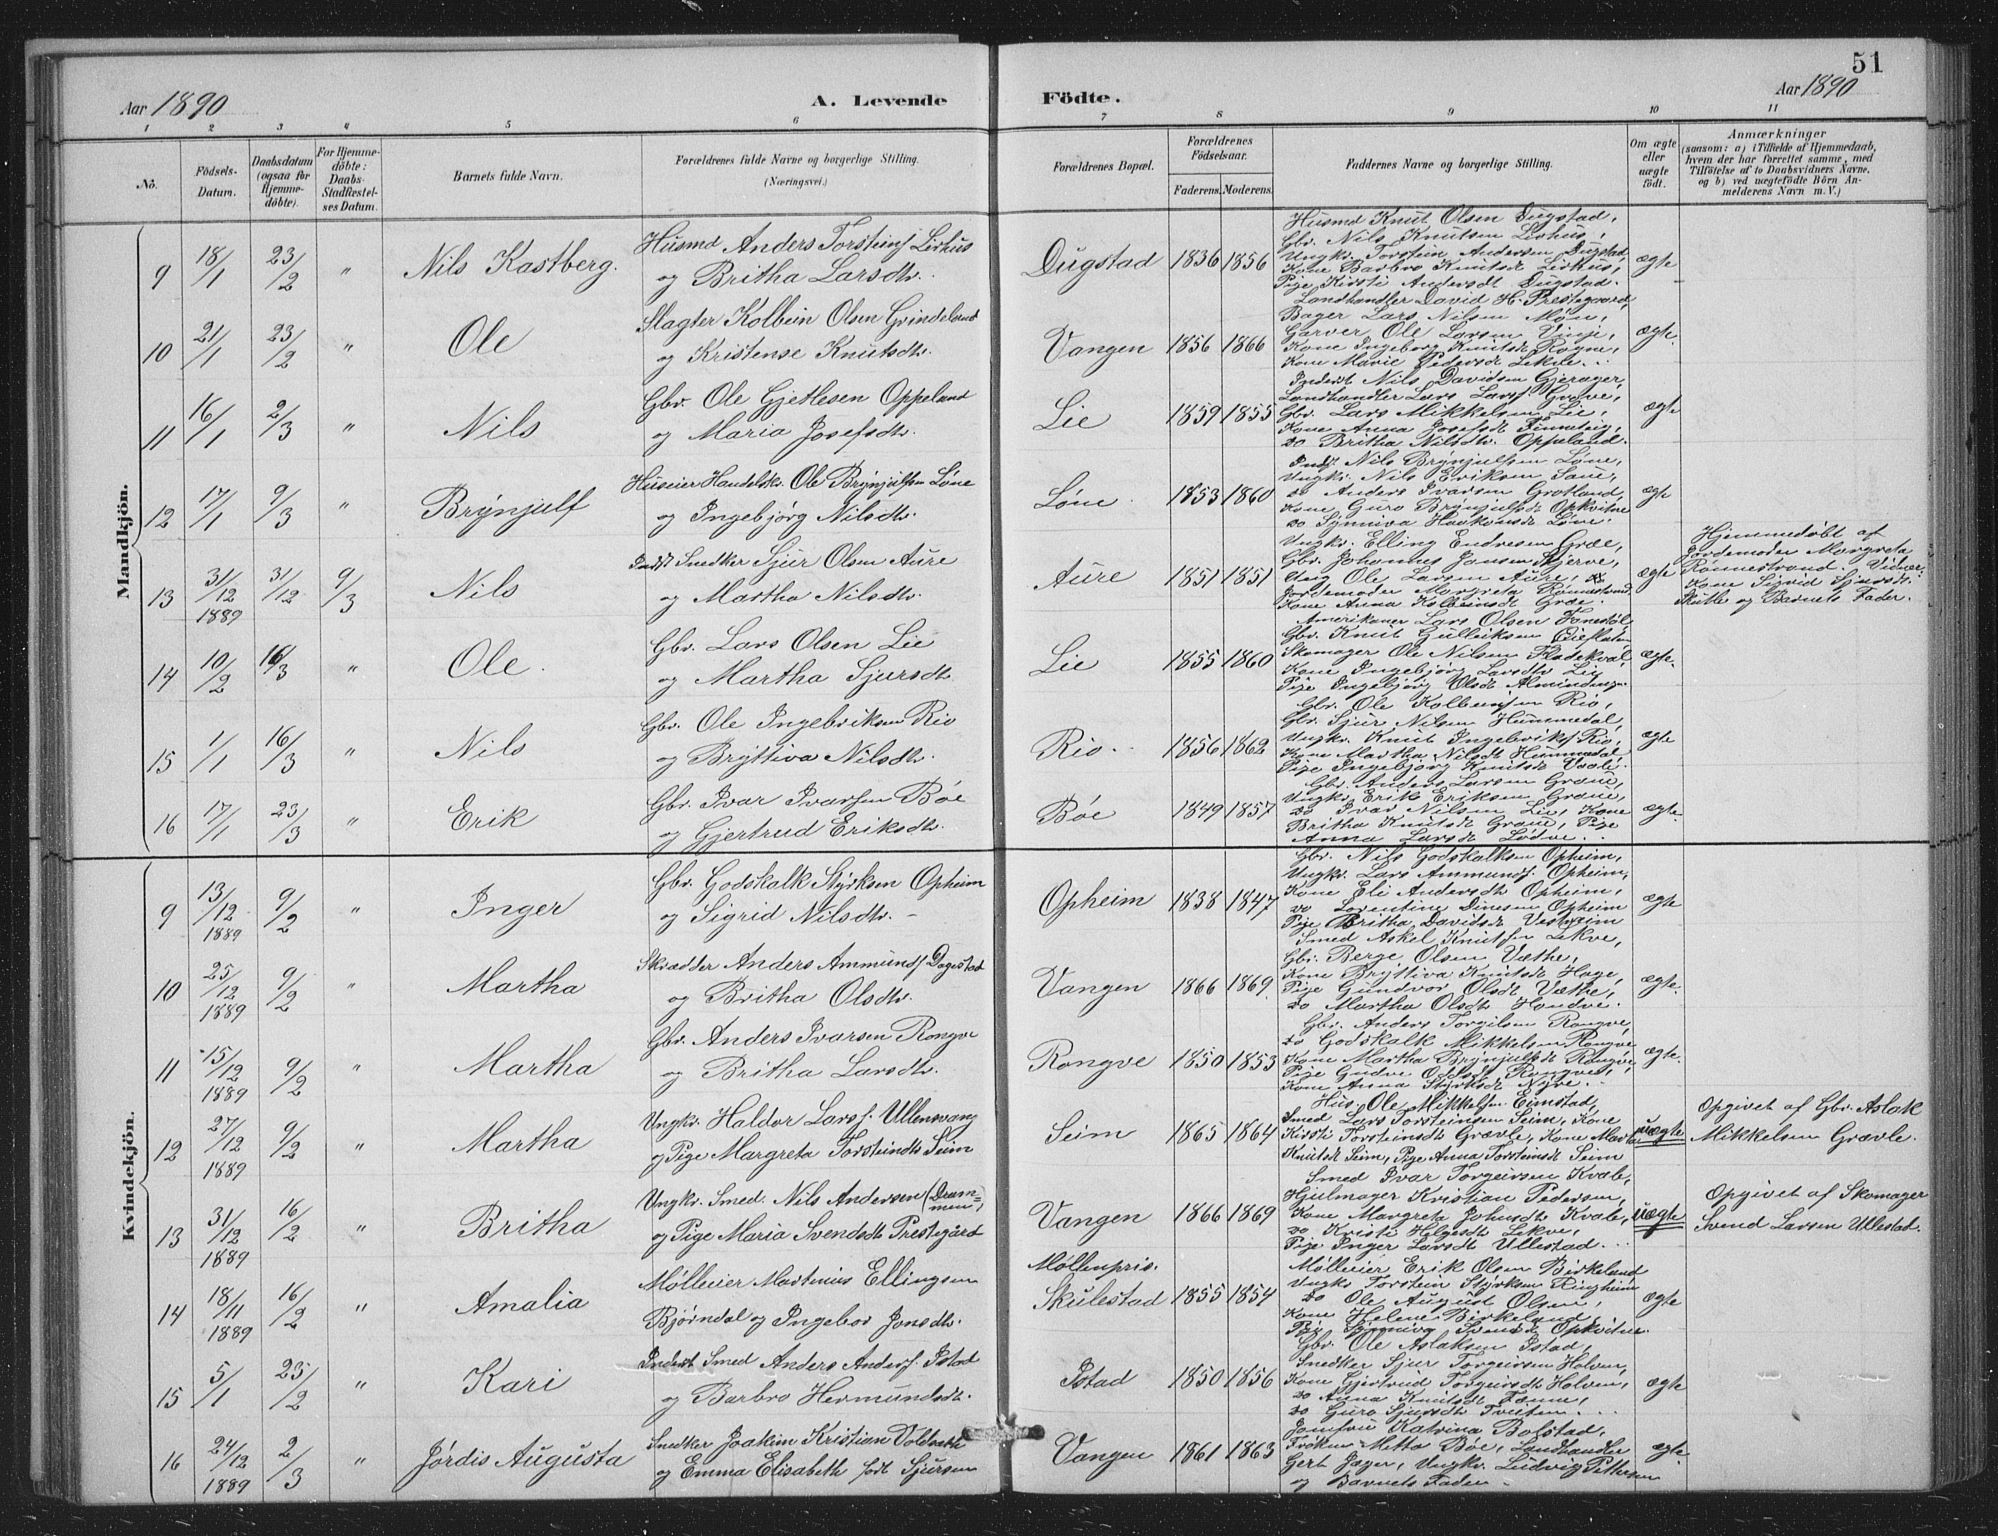 51
Aar 1890
A. Levende
Födte.
Aar 1890
1 2 3 4 5 6 7 8 9 10 11
No.
Födsels-Datum.
Daabsdatum (ogsaa for Hjemme-döbte).
For Hjemme-döbte: Daabs-Stadfæstel-ses Datum.
Barnets fulde Navn.
Forældrenes fulde Navne og borgerlige Stilling.
(Næringsvei.)
Forældrenes Bopæl.
Forældrenes Födselsaar.
Faderens. Moderens.
Faddernes Navne og borgerlige Stilling.
Om ægte eller uægte födt.
Anmærkninger
(saasom: a) i Tilfælde af Hjemmedaab, hvem der har forrettet samme, med Tilföielse af to Daabsvidners Navne, og b) ved uægtefödte Börn An-melderens Navn m. V.)
Mandkjön.
9 18/1 23/2 " Nils Kastberg.
Husmd Anders Torsteins Lirhus
og Britha Larsdtr.
Dugstad 1836 1856
Husmd Knut Olsen Dugstad,
Gbr. Nils Knutsen Lirhus,
Ungkr. Torstein Andersen Dugstad,
Kone Barbro Knutsdt Lirhus,
Pige Kirsti Andersdt Dugstad.
ægte
10 21/1 23/2 " Ole
Slagter Kolbein Olsen Grindeland
og Kristense Knutsdtr.
Vangen 1856 1866
Landhandler David H. Prestegaard,
Bager Lars Nilsen Møn,
Garver Ole Larsen Vinje,
Kone Ingeborg Knutsdt Rogne,
Kone Marie Pedersdt Lekve.
ægte.
11 16/1 2/3 " Nils
Gbr. Ole Gjetlesen Oppeland
og Maria Josefsdtr.
Lie 1859 1855
Inderst Nils Davidsen Gjerager,
Landhandler Lars Larss. Grove,
Gbr. Lars Mikkelsen Lie,
Kone Anna Josefsdt Finnesteig,
do Britha Nilsdtr. Oppeland.
ægte
12 17/1 9/3 " Brynjulf
Huseier Handelskr Ole Brynjulfsen Løne
og Ingebjørg Nilsdtr.
Løne 1853 1860
Inds. Nils Brynjulfsen Løne,
Ungkr. Nils Eriksen Saue,
do Anders Ivarsen Grotland,
Kone Guro Brynjulfsdt Opkvitne
do Synniva Haakonsdt Løne.
ægte
13 31/12 1889 31/12 9/3 Nils
Indst Snedker Sjur Olsen Aure
og Martha Nilsdtr.
Aure 1851 1851
Ungkr. Elling Endresen Græe,
Gbr. Johannes Jonsen Skjerve,
Ung Ole Larsen Aure,
Jordemoder Margreta Rønnestrand
Kone Anna Kolbeinsdt Græe.
ægte
Hjemmedøbt af
Jordemoder Margreta
Rønnestrand. Vidner:
Kone Sigrid Sjursdtr.
Skutle og Barnets Fader.
14 10/2 16/3 " Ole.
Gbr. Lars Olsen Lie
og Martha Sjursdtr.
Lie 1855 1860
Amerikaner Lars Olsen
Gbr. Knut Gulleiksen
Skomager Ole Nilsen Flatekval,
Kone Ingebjørg Larsdtr Lie
Pige Ingebjørg Olsdt Almindingen.
ægte.
15 1/1 16/3 " Nils
Gbr. Ole Ingebriksen Rio
og Bryttiva Nilsdtr.
Rio 1856 1862
Gbr. Ole Kolbeinsen Rio,
Gbr. Sjur Nilsen Hummedal,
Ungkr. Knut Ingebriks. Rio,
Kone Martha Nilsdt Hummedal,
Pige Ingebjørg Knutsdt
ægte
16 17/1 23/3 " Erik
Gbr. Ivar Ivarsen Bøe
og Gjertrud Eriksdtr.
Bøe 1849 1857
Gbr. Anders Larsen Græue,
Ungkr. Erik Eriksen Græue,
do Ivar Nilsen Lie, Kone
Britha Knutsdt Græue, Pige
Anna Larsdt Lødve.
ægte.
Kvindekjön.
9 13/12 1889 9/2 " Inger
Gbr. Godskalk Styrksen Opheim
og Sigrid Nilsdtr.
Opheim 1838 1847
Gbr. Nils Godskalksen Opheim,
Ungkr. Lars Ammunds. Opheim,
Kone Eli Andersdtr Opheim,
do Lorentine Dinesen Opheim
Pige Britha Davidsdt Vestrheim
ægte
10 25/12 1889 9/2 " Martha
Skrædder Anders Ammunds. Dagestad
og Britha Olsdtr.
Vangen 1866 1869.
Smed Askel Knutsen Lekve,
Gbr. Berge Olsen Væthe,
Kone Bryttiva Knutsdt Hage,
Pige Gundvor Olsdt Væthe,
do Martha Olsdtr Hondve.
ægte.
11 15/12 1889 9/2 " Martha
Gbr. Anders Ivarsen Rongve
og Britha Larsdtr.
Rongve 1850 1853
Gbr. Anders Torgilsen Rongve,
do Godskalk Mikkelsen Rongve
Kone Martha Brynjulfsdt Rongve
Pige Gudve Oddsdt Rongve,
Kone Anna Styrksdt Nyre.
ægte.
12 27/12 1889 9/2 " Martha
Ungkr. Haldor Larss. Ullensvang
og Pige Margreta Torsteindtr Seim
Seim 1865 1864
Hus. Ole Mikkelsen Eimstad,
Smed Lars Torsteinsen Seim, Kone
Kirsti Torsteinsdt Grævle, Kone Martha
Knutsdt Seim, Pige Anna Torsteinsdt Seim
uægte
Opgivet af Gbr. Aslak
Mikkelsen Grævle.
13 31/12 1889 16/2 " Britha
Ungkr. Smed. Nils Andersen (Dram=
men)
og Pige Maria Svendsdt Prestegård
Vangen 1866 1869
Smed Ivar Torgeirsen Kvåle,
Hjulmager Kristian Pedersen,
Kone Margreta Johnsdt Kvåle,
do Kristi Helgesdt Lekve,
Pige Inger Larsdt Ullestad.
uægte
Opgivet af Skomager
Svend Larsen Ullestad.
14 18/11 1889 16/2 " Amalia
Mølleier Martinius Ellingsen
Bjørndal og Ingebor Jonsdtr.
Møllenpris.
Skulestad 1855 1854
Mølleier Erik Olsen Birkeland
Ungkr Torstein Styrksen Ringheim
do Ole August Olsen,
Kone Helene Birkeland,
Pige Synniva Svensdt Opkvitne.
ægte
15 5/1 23/2 " Kari
Inderst Smed Anders Anders. Istad
og Barbro Hermundsdtr.
Istad 1850 1856
Gbr. Ole Aslaksen Istad,
Snedker Sjur Torgeirsen Holven,
Kone Gjertrud Torgeirsdt Holven,
do Anna Knutsdt Tønne,
do Guro Sjursdt Tveiten.
ægte
16 24/12 1889 2/3 " Jørdis Augusta
Snedker Joakim Kristian
og Emma Elisabeth født Sjursen
Vangen 1861 1863
Jomfru Katrina Bolstad,
Frøken Metta Bøe, Landhandler
Gert Jager, Ungkr. Ludvig Pettersen
og Barnets Fader.
ægte